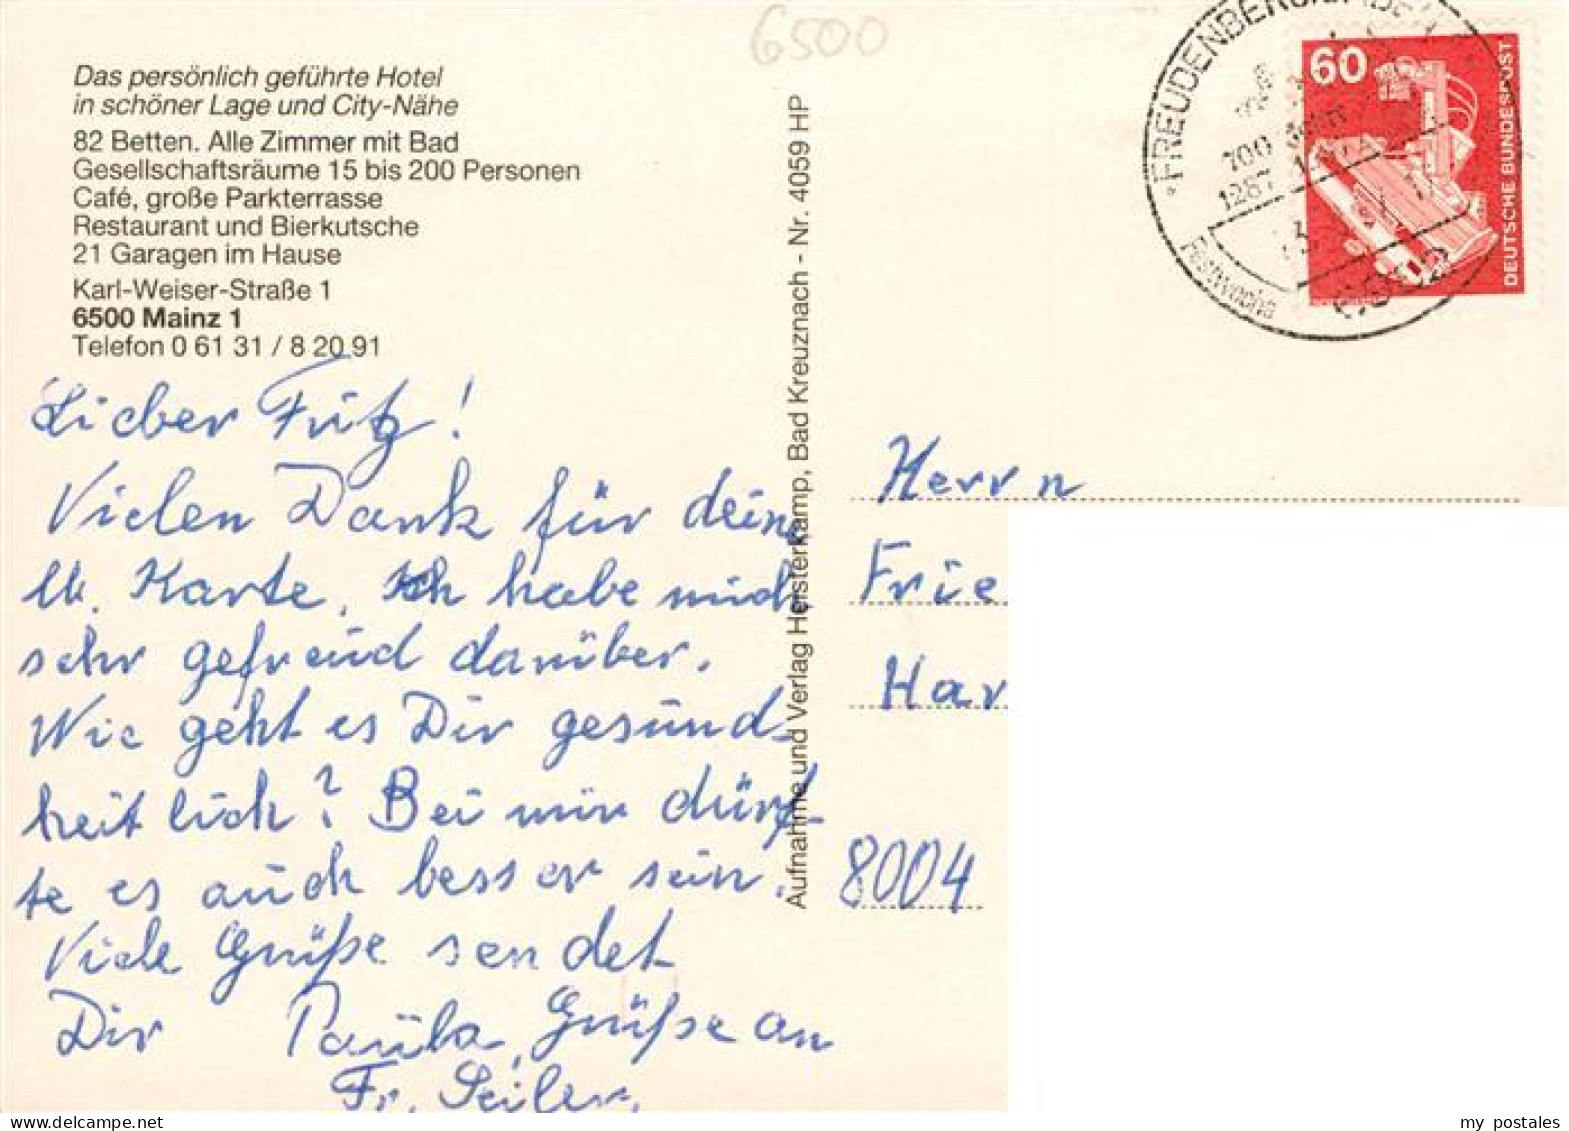 6500
Das persönlich geführte Hotel
in schöner Lage und City-Nähe
82 Betten. Alle Zimmer mit Bad
Gesellschaftsräume 15 bis 200 Personen
Café, große Parkterrasse
Restaurant und Bierkutsche
21 Garagen im Hause
Karl-Weiser-Straße 1
6500 Mainz 1
Telefon 0 61 31 / 8 20 91
Lieber Fritz!
Vielen Dank für deine
lb. Karte, Ich habe mich
sehr gefreud darüber.
Wie geht es Dir gesund-
heitlich? Bei mir dürf-
te es auch besser sein.
Viele Grüße sendet
Dir Paula, Grüße an
Fr. Seiler.
Aufnahme und Verlag Heisterkamp, Bad Kreuznach - Nr. 4059 HP
60
DEUTSCHE BUNDESPOST
FREUDENBERG
700
1287
Festwoche
Herrn
Frie
Har
8004
my postales